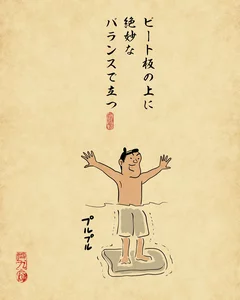 ビート板の上に
絶妙な
バランスで立つ
プルプル